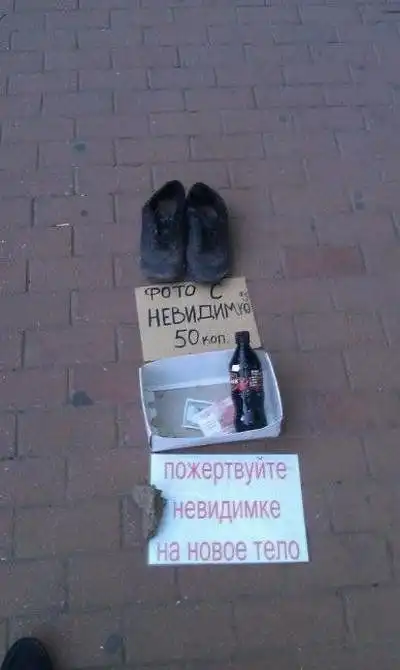 ФОТО С
НЕВИДИМКОЙ
50 коп.
пожертвуйте
невидимке
на новое тело